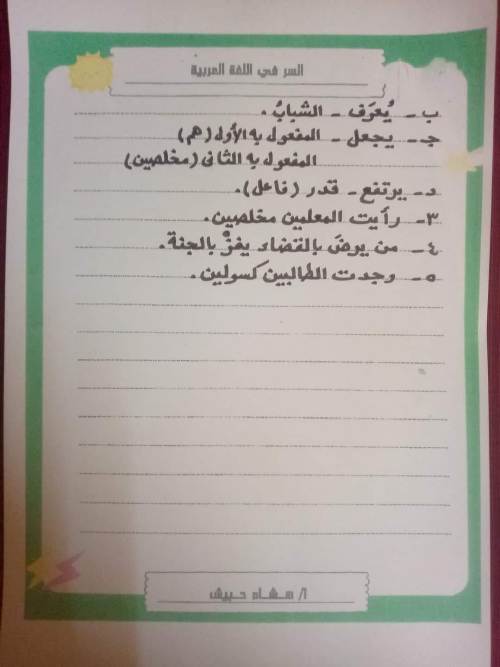 السر في اللغة العربية
ب - يُعرَف - الشبابُ .
جـ - يجعل - المفعول به الأول (هم)
المفعول به الثاني (مخلصين)
د - يرتفع - قدر (فاعل).
٣- رأيت المعلمين مخلصين.
٤- من يرضَ بالقضاء يفزْ بالجنة.
٥- وجدت الطالبين كسولين.
أ/ هشام حبيش